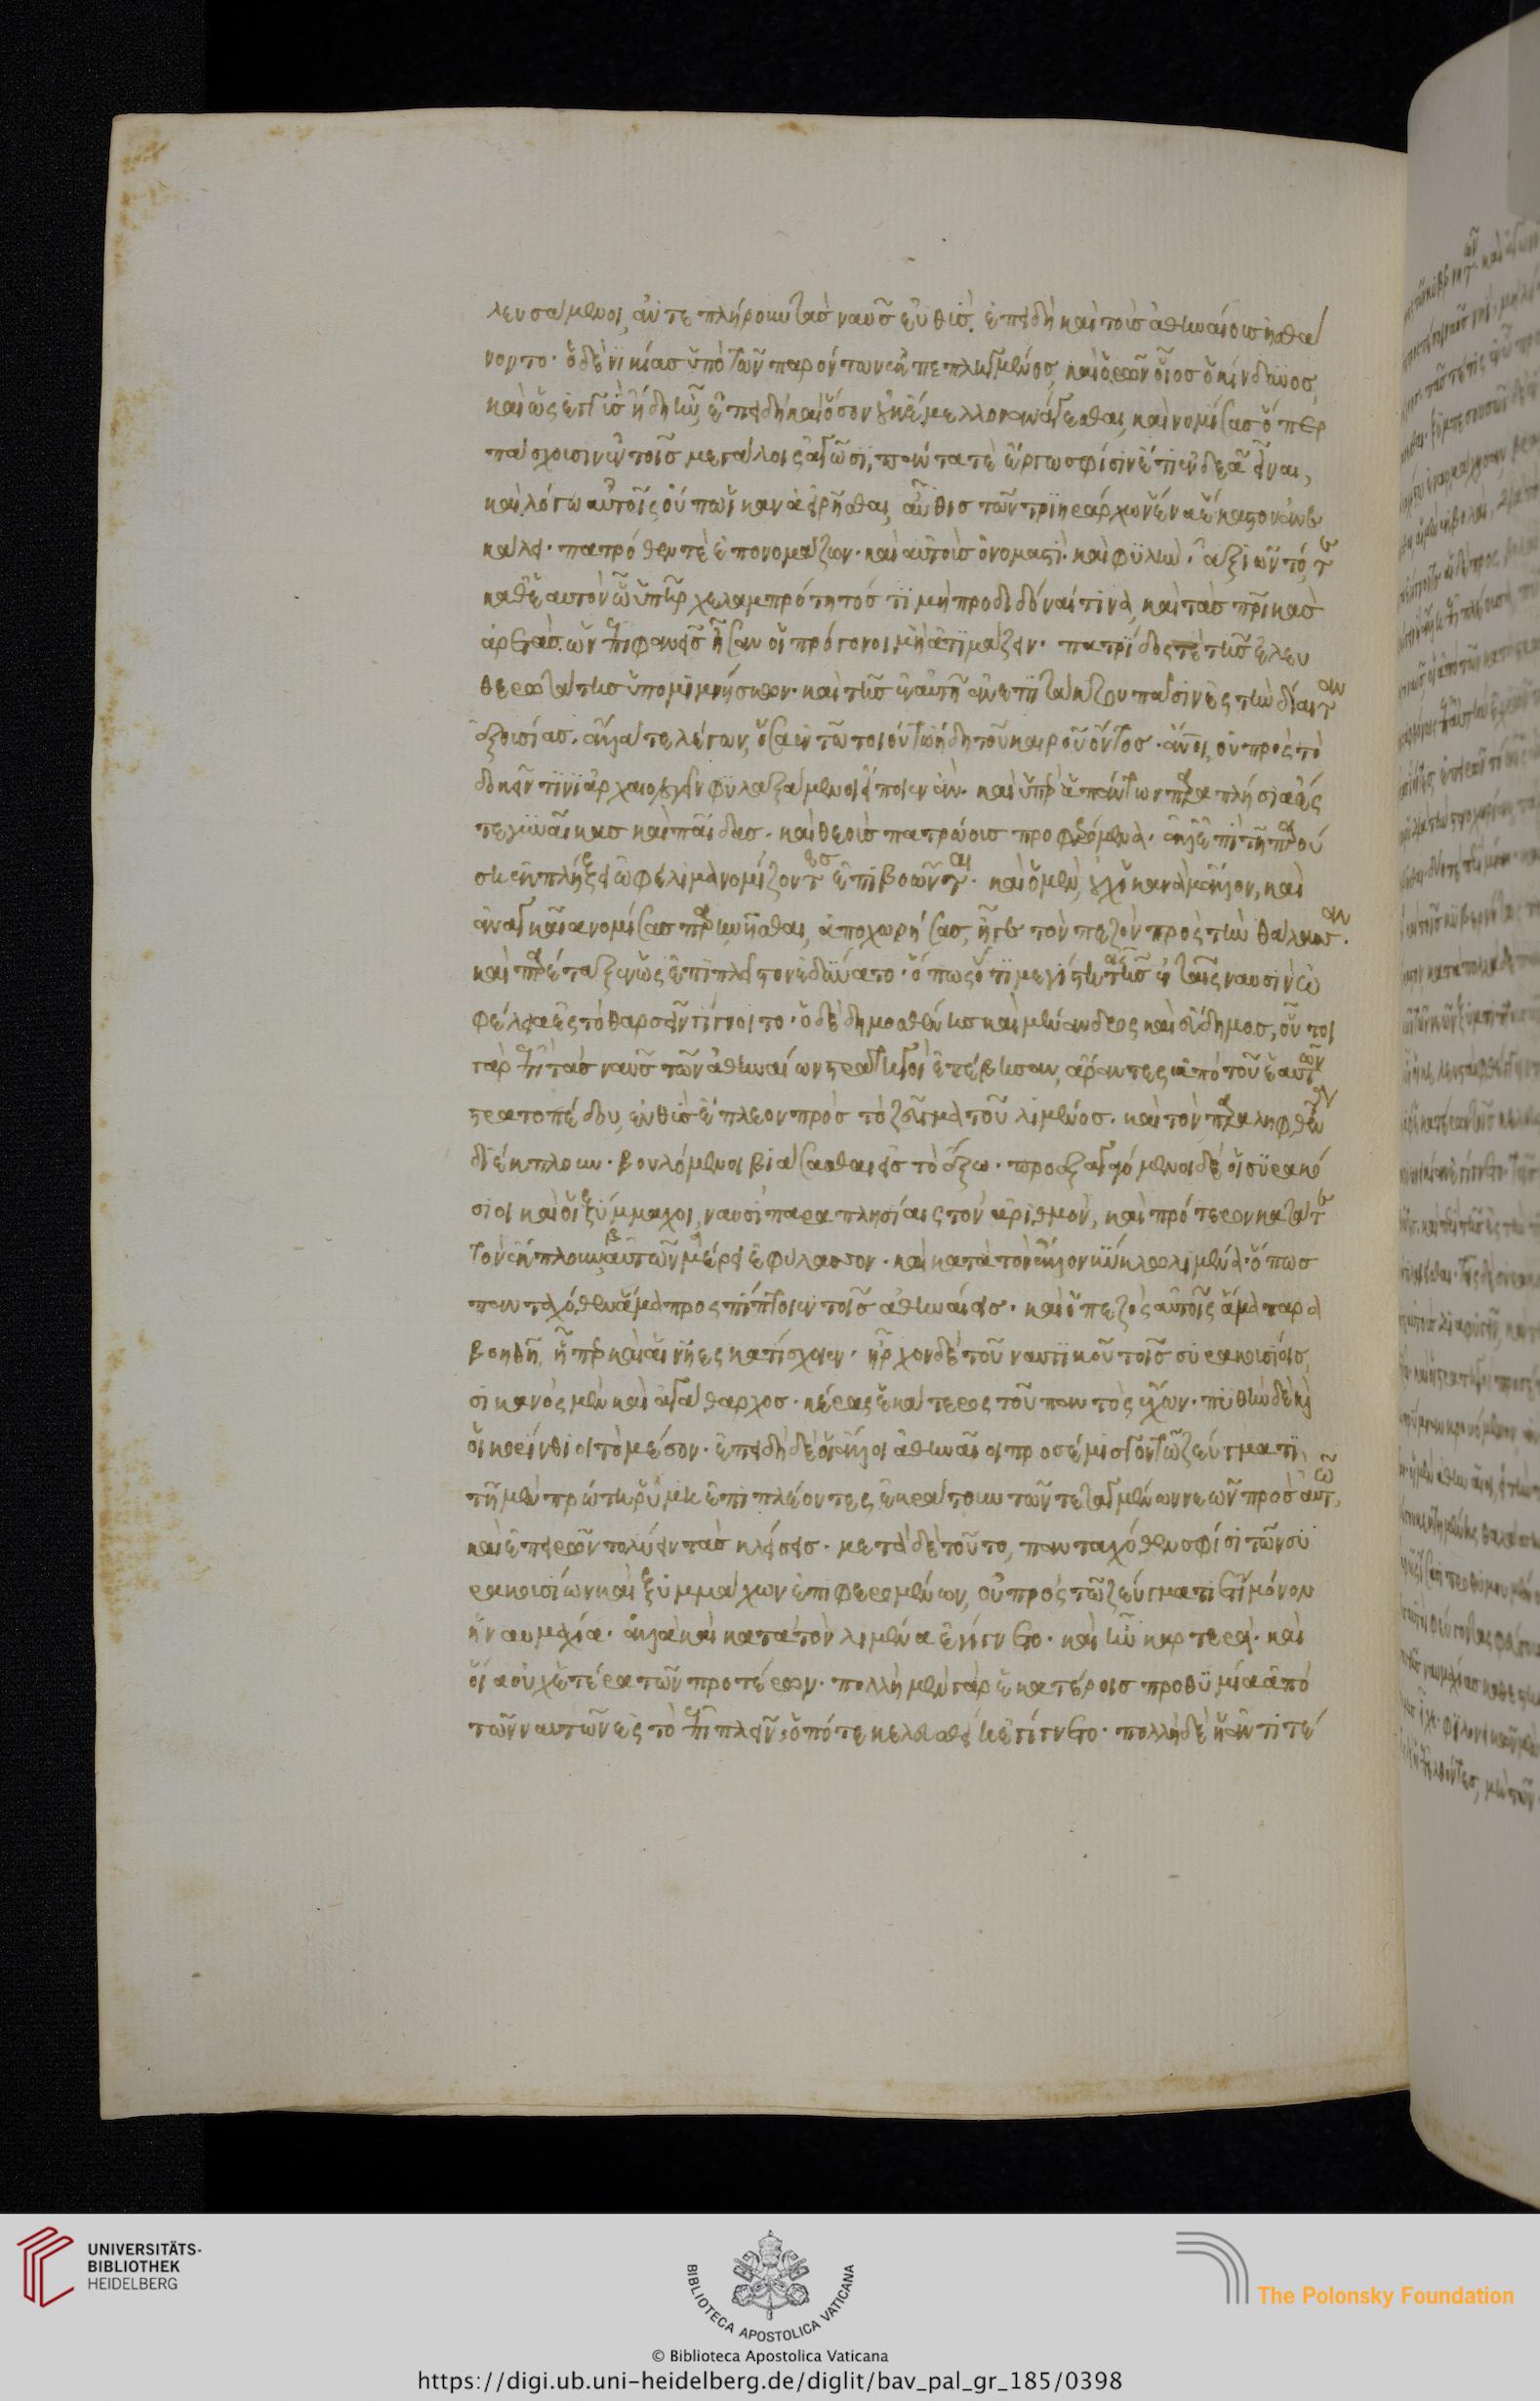 λευσάμενοι, ἀντεπλήρουν τὰς ναῦς εὐθὺς, ἐπειδὴ καὶ τοὺς ἀθηναίους ἠσθά
νοντο· ὁ δὲ νικίας ὑπὸ τῶν παρόντων ἐκπεπληγμένος, καὶ ὁρῶν οἷος ὁ κίνδυνος,
καὶ ὡς ἐγγὺς ἤδη ἦν, ἐπειδὴ καὶ ὅσον οὐκ ἔμελλον ἀνάγεσθαι, καὶ νομίσας ὅπερ
πάσχουσιν ἐν τοῖς μεγάλοις ἀγῶσι, πάντα τὲ ἔργω σφίσιν ἔτι ἐνδεᾶ εἶναι,
καὶ λόγω αὐτοῖς οὔπω ἱκανὰ εἰρῆσθαι, αὖθις τῶν τριηράρχων ἕνα ἕκαστον ἀνε
κάλει· πατρόθεν τὲ ἐπονομάζων· καὶ αὐτοὺς ὀνομαστὶ· καὶ φυλὴν· ἀξιῶν τό, τε
καθ' ἑαυτὸν ὧ ὑπῆρχε λαμπρότητός τι μὴ προδιδόναι τινὰ, καὶ τὰς πρικὰς
ἀρετὰς ὧν ἐπιφανεῖς ἦσαν οἱ πρόγονοι μὴ ἀτιμάζειν· πατρίδος τὲ τῆς ἐλευ
θερωτάτης ὑπομιμνήσκων· καὶ τῆς ἐν αὐτῆ ἀνεπιτάκτου πᾶσιν ἐς τὴν δίαιταν
ἐξουσίας· ἄλλα τε λέγων, ὅσα ἐν τῶ τοιούτω ἤδη τοῦ καιροῦ ὄντος· ἄνοι, οὐ πρὸς τὸ
δοκεῖν τινὶ ἀρχαιολογεῖν φυλαξάμενοι εἴποιεν ἂν· καὶ ὑπὲρ ἁπάντων παραπλήσια ἔς
τε γυναῖκας καὶ παῖδας· καὶ θεοὺς πατρώους προφερόμενα· ἀλλ' ἐπὶ τῆ παρού
ση ἐκπλήξει ὠφέλιμα νομίζοντες ἐπιβοῶνται· καὶ ὁ μὲν, οὐχ ἱκανὰ μᾶλλον, καὶ
ἀναγκαῖα νομίσας παρηνῆσθαι, ἀποχωρήσας, ἦγε τὸν πεζὸν πρὸς τὴν θάλασσαν.
καὶ παρέταξεν ὡς ἐπὶ πλεῖστον ἐδύνατο· ὅπως ὅτι μεγίστη τῆς ἐν ταῖς ναυσὶν ὠ
φέλεια ἐς τὸ θαρσεῖν γίγνοιτο· ὁ δὲ δημοσθένης καὶ μένανδρος καὶ εὔδημος, οὗτοι
γὰρ ἐπὶ τὰς ναῦς τῶν ἀθηναίων στρατηγοὶ ἐπέβησαν, ἄραντες ἀπὸ τοῦ ἑαυτῶν
στρατοπέδου, εὐθὺς ἔπλεον πρὸς τὸ ζεῦγμα τοῦ λιμένος· καὶ τὸν παραληφθέντα
διέκπλουν· βουλόμενοι βιάσασθαι εἰς τὸ ἔξω· προεξαγαγόμενοι δὲ οἱ συρακό
σιοι καὶ οἱ ξύμμαχοι, ναυσὶ παραπλησίαις τὸν ἀριθμὸν, καὶ πρότερον κατά τε
τὸν ἔκπλουν αὐτῶν μέρει ἐφύλασσον· καὶ κατὰ τὸν ἄλλον κύκλω λιμένα· ὅπως
πανταχόθεν ἅμα προσπίπτοιεν τοῖς ἀθηναίοις· καὶ ὁ πεζὸς αὐτοῖς ἅμα παρα
βοηθῆ, ἧπερ καὶ αἱ νῆες κατίσχοιεν· ἦρχον δὲ τοῦ ναυτικοῦ τοῖς συρακουσίοις,
σικανὸς μὲν καὶ ἀγάθαρχος· κέρας ἑκάτερος τοῦ παντὸς ἔχων· πυθὴν δὲ καὶ
οἱ κορίνθιοι τὸ μέσον· ἐπειδὴ δὲ οἱ ἄλλοι ἀθηναῖοι προσέμισγον τῶ ζεύγματι,
τῆ μὲν πρώτη ῥύμη ἐπιπλέοντες ἐκράτουν τῶν τεταγμένων νεῶν πρὸς αὐτῶ,
καὶ ἐπειρῶντο λύειν τὰς κλείσεις· μετὰ δὲ τοῦτο, πανταχόθεν σφίσι τῶν συ
ρακουσίων καὶ ξυμμάχων ἐπιφερομένων, οὐ πρὸς τῶ ζεύγματι ἔτι μόνον
ἡ ναυμαχία· ἀλλὰ καὶ κατὰ τὸν λιμένα ἐγίγνετο· καὶ ἦν καρτερὰ· καὶ
οἵα οὐχ ἑτέρα τῶν προτέρων· πολλὴ μὲν γὰρ ἑκατέροις προθυμία ἀπὸ
τῶν ναυτῶν ἐς τὸ ἐπιπλεῖν, ὁπότε κελευσθείη ἐγίγνετο· πολλὴ δὲ ἡ ἀντιτέ
UNIVERSITÄTS-
BIBLIOTHEK
HEIDELBERG
BIBLIOTECA APOSTOLICA VATICANA
The Polonsky Foundation
© Biblioteca Apostolica Vaticana
https://digi.ub.uni-heidelberg.de/diglit/bav_pal_gr_185/0398